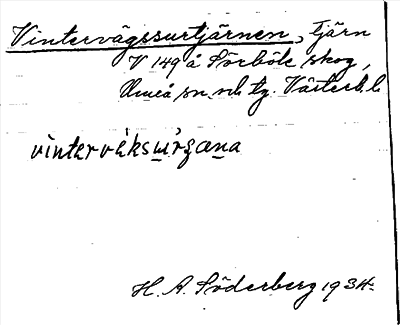 Vintervägssurtjärnen, tjärn
V 149 å Sörböle skog,
Umeå sn. nb. tg. Västerb. l.
vìntərvǻksɯ̲ŕʒæn̲a
H. A. Söderberg 1934.